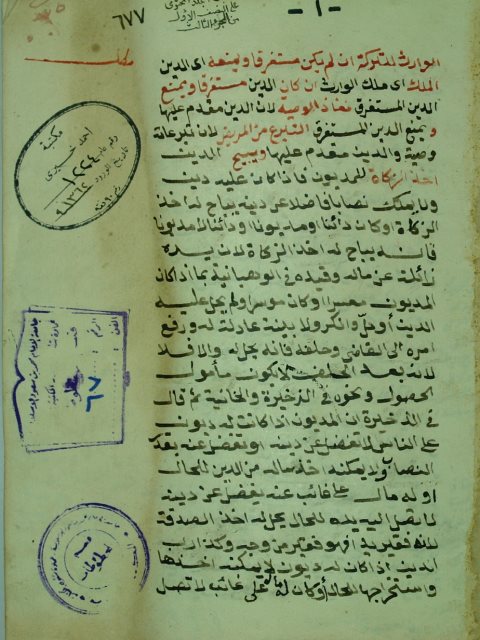 ٦٧٧
- ١ -
الوارث للتركة ان لم يكن مستغرقا ويمنعه اى الدين
الملك اى ملك الوارث ان كان الدين مستغرقا ويمنع
الدين المستغرق نفاذ الوصية لان الدين مقدم عليها
ويمنع الدين المستغرق التبرع من المريض لان تبرعاته
وصية والدين مقدم عليها ويبيح الدين
اخذ الزكاة للمديون فاذا كان عليه دين
ولا يملك نصابا فاضلا عن دينه يباح له اخذ
الزكاة وكان دائنا ومديونا ودائنا لا مديونا
فانه يباح له اخذ الزكاة لان يده
زائلة عن ماله وقيده فى الوهبانية بما اذا كان
المديون معسرا او كان موسرا ولم يحل عليه
الدين او حل وانكر ولا بينة عادلة له ورفع
امره الى القاضى وحلفه فانه يحل له والا فلا
لانه بعد الحلف لا يكون مأمول
الحصول ونحوه فى الذخيرة والخانية ثم قال
فى الذخيرة ان المديون اذا كانت له ديون
على الناس لا تفضل عن دينه او تفضل عنه بعد
النصاب ولا يمكنه اخذ ماله من الدين للحال
او له مال على غائب عنه يفضل عن دينه
لا تصل اليه يده للحال يحل له اخذ الصدقة
لانه فقير يدا فهو فقير من وجه وكذا رب
الدين اذا كان له ديون لا يمكنه اخذها
واستخراجها للحال او كان له مال على غائب لا تصل
مكتبة
١٢٢٤
٦٧